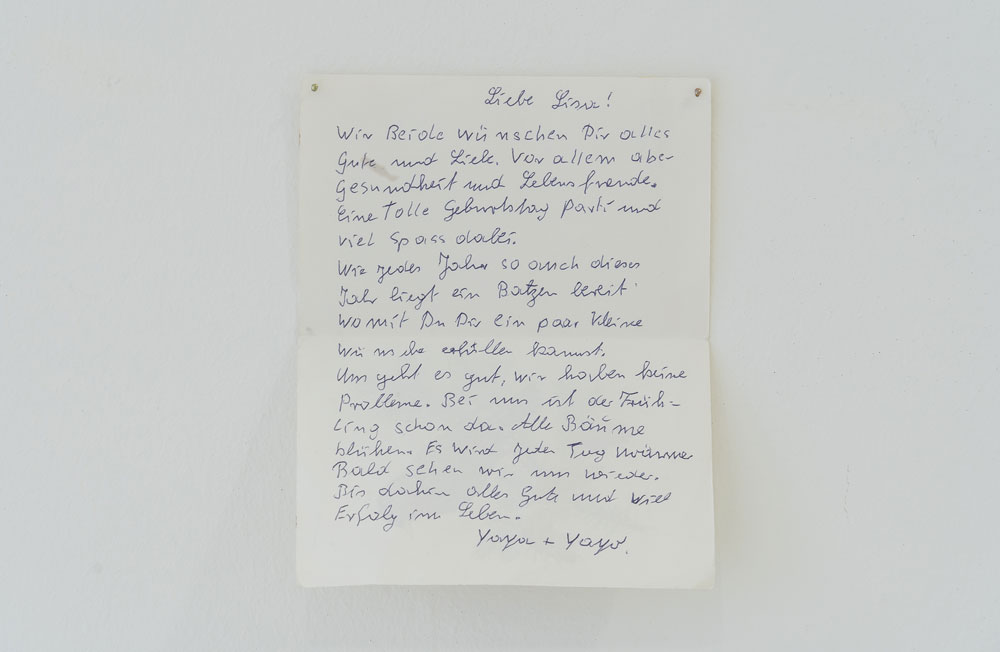 Liebe Lisa!
Wir Beide wünschen Dir alles
Gute und Liebe. Vor allem aber
Gesundheit und Lebensfreude.
Eine Tolle Geburtstag Parti und
viel Spass dabei.
Wie jedes Jahr so auch dieses
Jahr liegt ein Batzen bereit
Womit Du Dir ein paar kleine
Wünsche erfüllen kannst.
Uns geht es gut, wir haben keine
Probleme. Bei uns ist der Früh-
ling schon da. Alle Bäume
blühen. Es wird jeden Tag wärmer
Bald sehen wir uns wieder.
Bis dahin alles Gute und viel
Erfolg im Leben.
Yaya + Yayo.